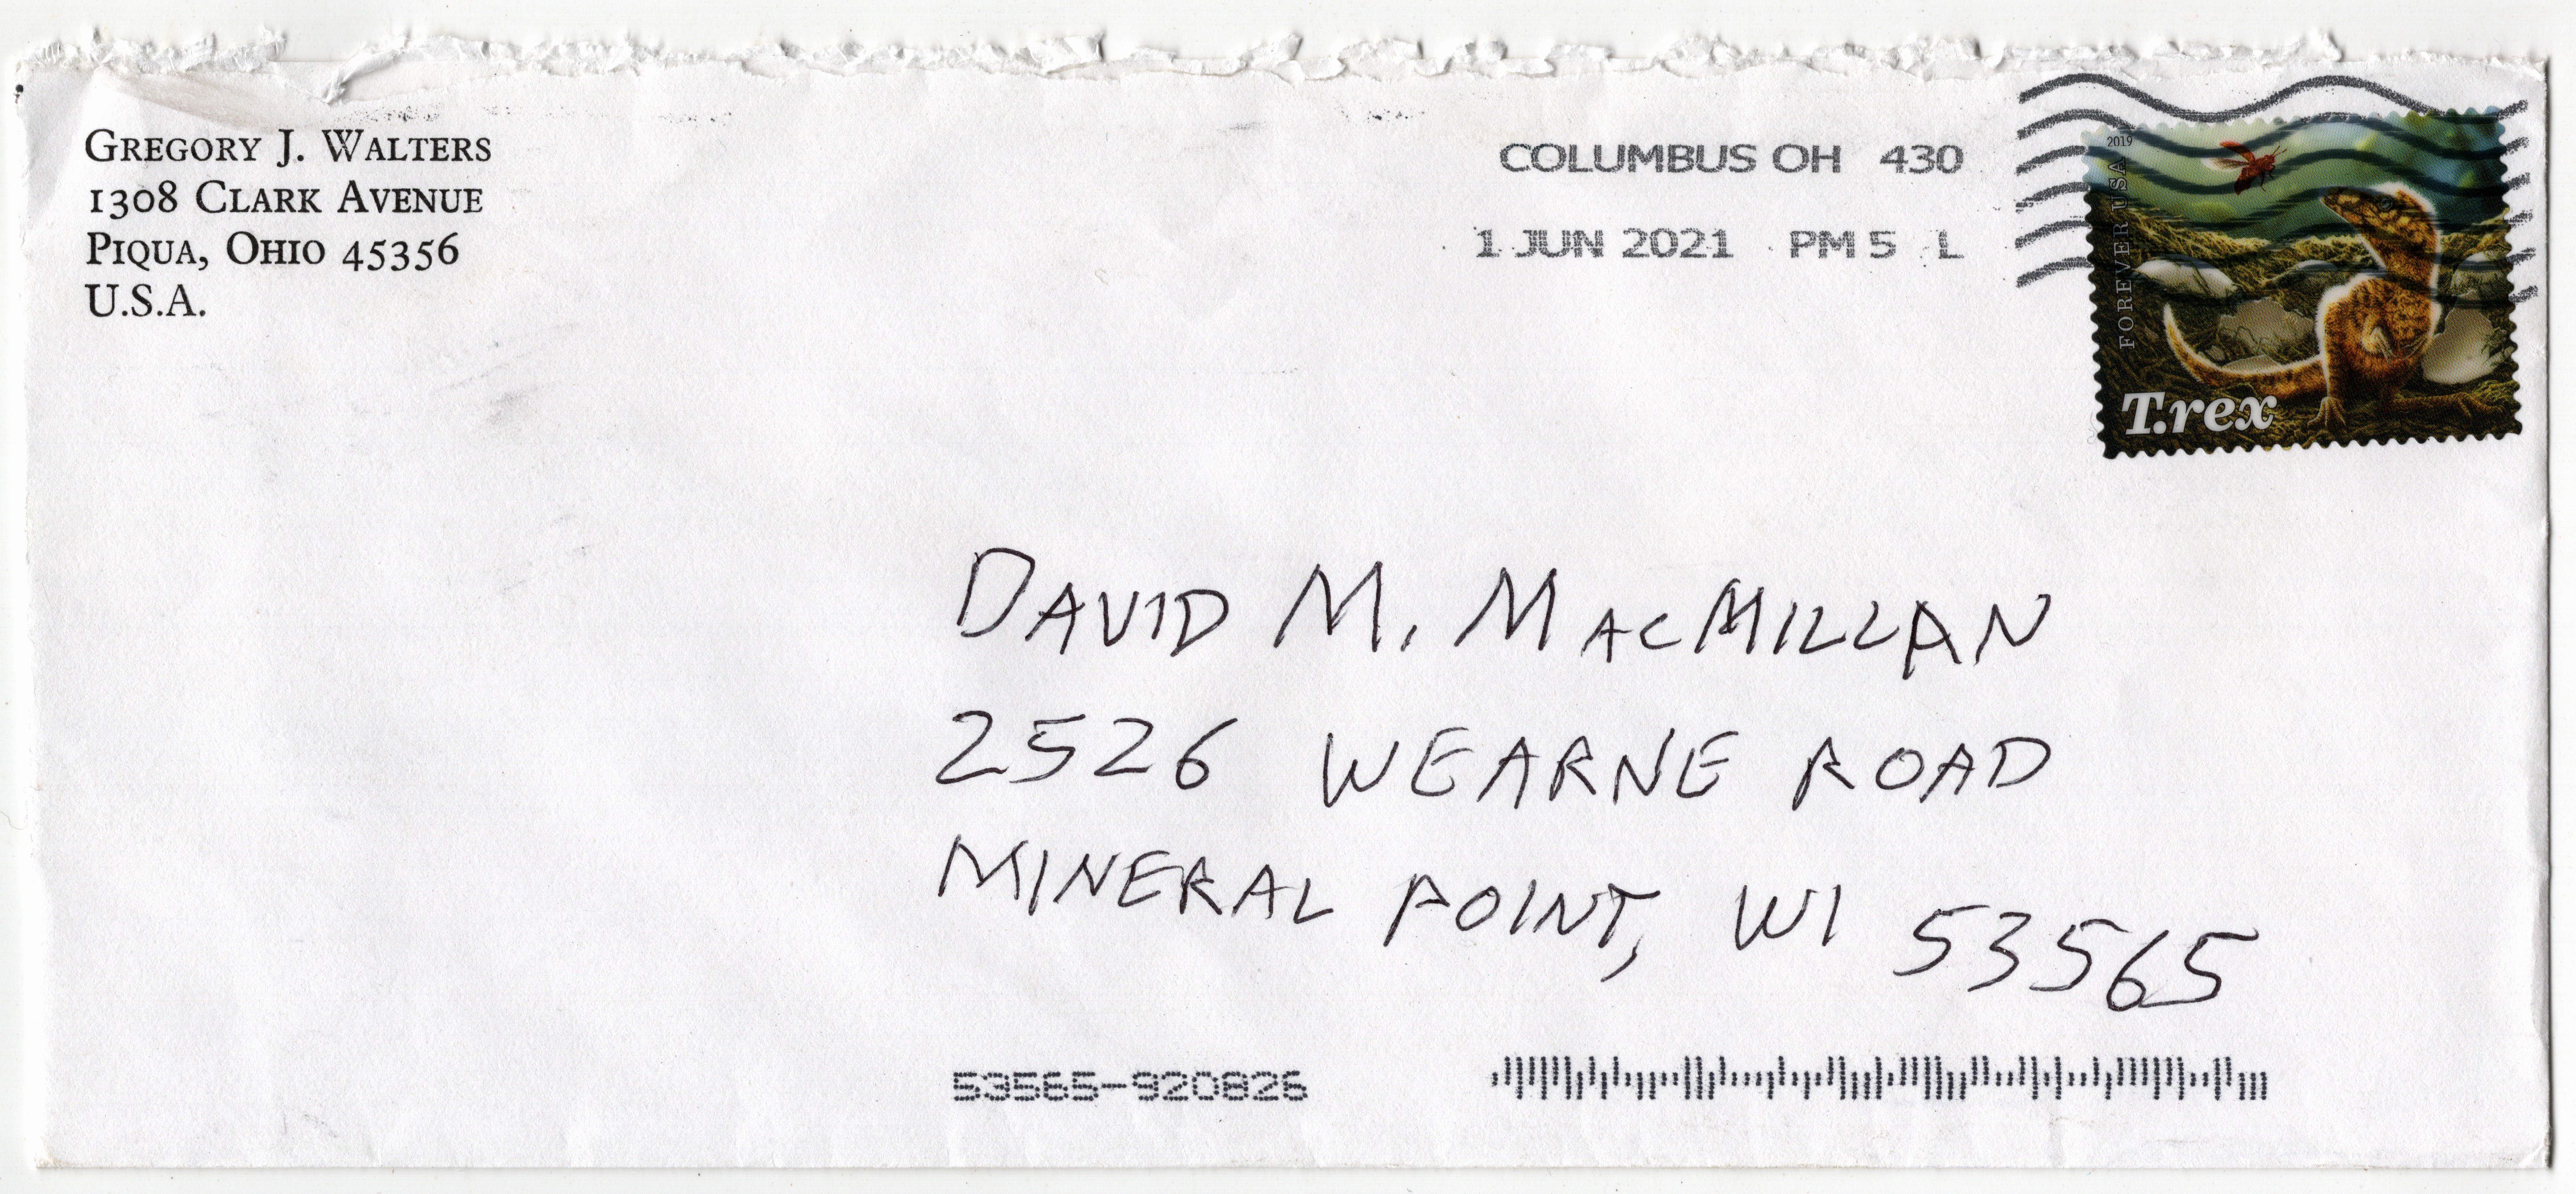 GREGORY J. WALTERS
1308 CLARK AVENUE
PIQUA, OHIO 45356
U.S.A.
COLUMBUS OH 430
1 JUN 2021 PM 5 L
2019
FOREVER USA
T.rex
DAVID M. MACMILLAN
2526 WEARNE ROAD
MINERAL POINT, WI 53565
53565-920826